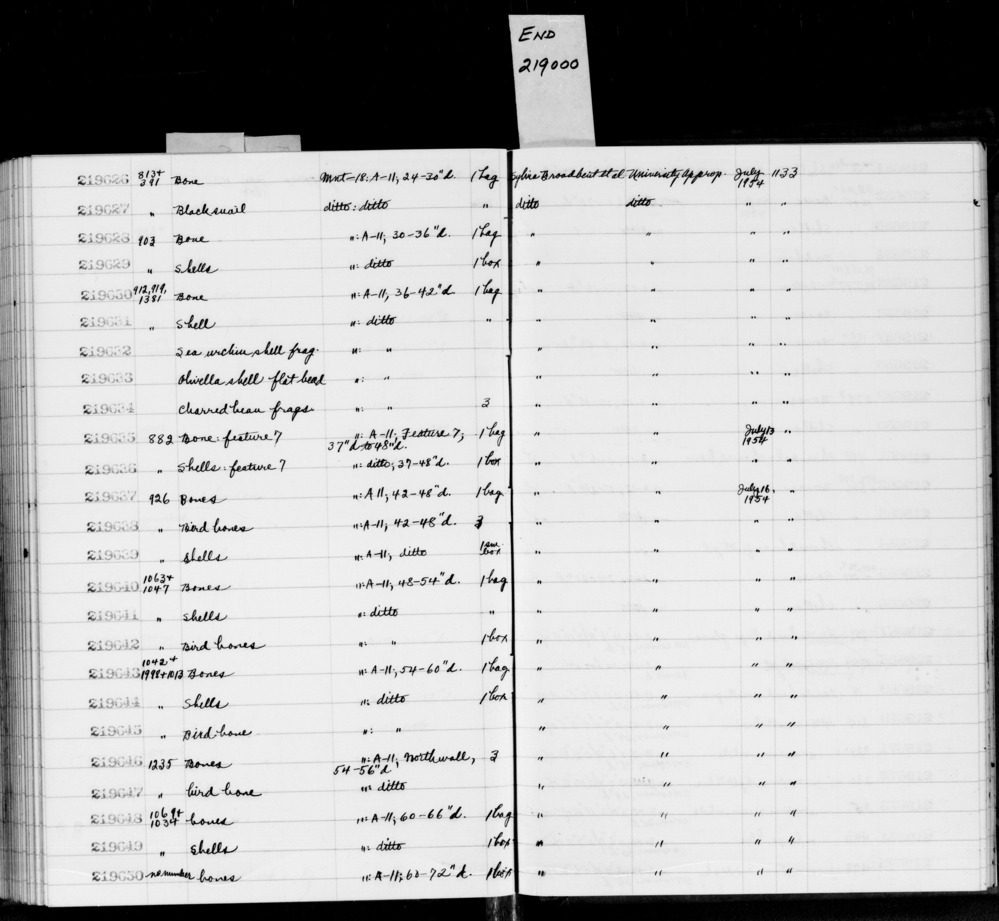 END
219000
219626 813+ 391 Bone Mnt-18: A-11; 24-30"d. 1 bag Sylvia Broadbent et al University approp. July 1954 1133
219627 " Black snail ditto: ditto " ditto ditto " "
219628 903 Bone ": A-11; 30-36"d. 1 bag " " " "
219629 " Shells ": ditto 1 box " " " "
219630 912, 919, 1381 Bone ": A-11; 36-42"d. 1 bag " " " "
219631 " Shell ": ditto " " " " "
219632 Sea urchin shell frag. ": " " " " "
219633 Olivella shell flat bead ": " " " " "
219634 Charred bean frags. ": " 3 " " " "
219635 882 Bone: feature 7 ": A-11; Feature 7; 37"d to 48"d. 1 bag " " July 13 1954 "
219636 " Shells: feature 7 ": ditto; 37-48"d. 1 box " " " "
219637 926 Bones ": A11; 42-48"d. 1 bag " " July 16, 1954 "
219638 " Bird bones ": A-11; 42-48"d. 3 " " " "
219639 " Shells ": A-11; ditto 1 sm box " " " "
219640 1063+ 1047 Bones ": A-11; 48-54"d. 1 bag " " " "
219641 " Shells ": ditto " " " " "
219642 " Bird bones ": " 1 box " " " "
219643 1042+ 1998+1013 Bones ": A-11; 54-60"d. 1 bag " " " "
219644 " Shells ": ditto 1 box " " " "
219645 " Bird bone ": " " " " "
219646 1235 Bones ": A-11; North wall, 54-56"d 3 " " " "
219647 " bird bone ": ditto " " " "
219648 1069+ 1034 bones ": A-11; 60-66"d. 1 bag " " " "
219649 " Shells ": ditto 1 box " " " "
219650 no number bones ": A-11; 60-72"d. 1 box " " " "